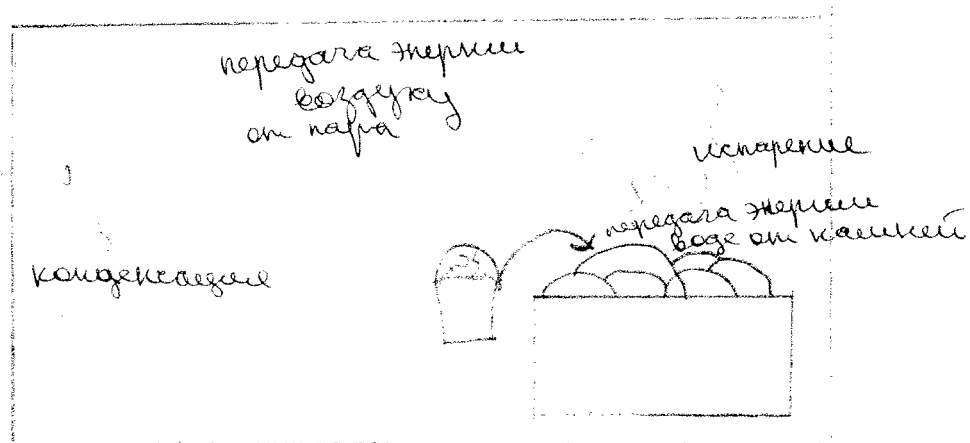 передача энергии
воздуху
от пара
испарение
передача энергии
воде от камней
конденсация